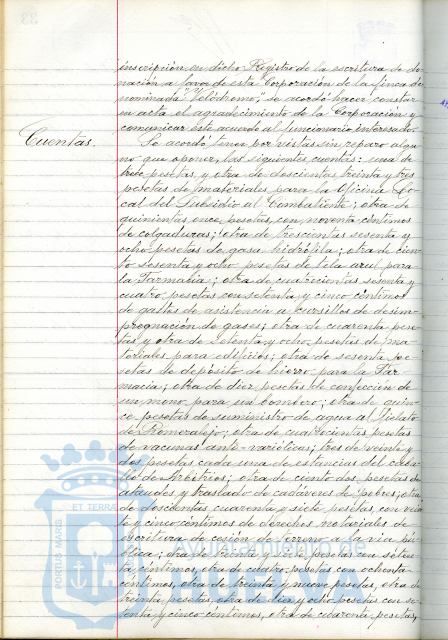 inscripción en dicho Registro de la escritura de do-
nación a favor de esta Corporación de la finca de-
nominada "Velódromo", se acordó hacer constar
en acta el agradecimiento de la Corporación y
comunicar este acuerdo al funcionario interesado.
Cuentas.
Se acordó tener por vistas sin reparo algu-
no que oponer, las siguientes cuentas: una de
trece pesetas, y otra de doscientas treinta y tres
pesetas de materiales para la Oficina Lo-
cal del Subsidio al Combatiente; otra de
quinientas once pesetas, con noventa céntimos
de colgaduras; otra de trescientas sesenta y
ocho pesetas de gasa hidrófila; otra de cien-
to sesenta y ocho pesetas de tela azul para
la Farmacia; otra de cuatrocientas sesenta y
cuatro pesetas con setenta y cinco céntimos
de gastos de asistencia a cursillos de desim-
pregnación de gases; otra de cuarenta pese-
tas y otra de setenta y ocho pesetas de ma-
teriales para edificios; otra de sesenta pe-
setas de depósito de hierro para la Far-
macia; otra de diez pesetas de confección de
un mono para un bombero; otra de quin-
ce pesetas de suministro de agua al
de Romeralejo; otra de cuatrocientas pesetas
de vacunas anti-variólicas; tres de veinte y
dos pesetas cada una de estancias del
de Arbitrios; otra de ciento dos pesetas de
ataudes y traslado de cadáveres de pobres; otra
de doscientas cuarenta y siete pesetas, con vein-
te y cinco céntimos de derechos notariales de
escritura de cesión de terreno a la vía pú-
blica; otra de treinta y siete pesetas con seten-
ta céntimos, otra de cuatro pesetas con ochenta
céntimos, otra de treinta y nueve pesetas, otra de
treinta pesetas, otra de diez y ocho pesetas con se-
tenta y cinco céntimos, otra de cuarenta pesetas,
ET TERRA
PORTUS MARIS
Ayuntamiento de